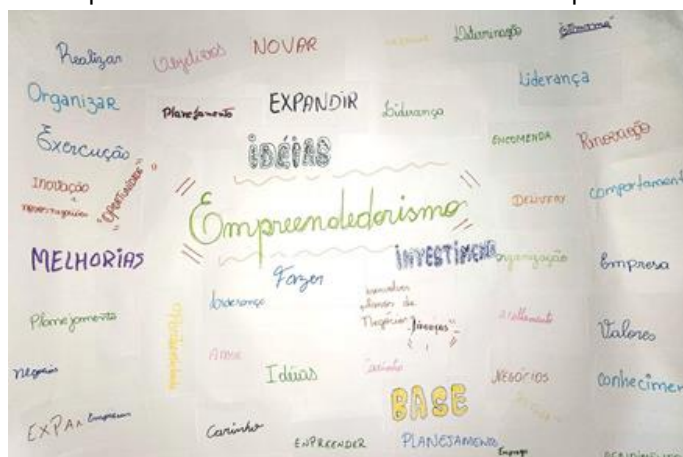 Realizar
Objetivos
NOVAR
Determinação
Liderança
Organizar
Planejamento
EXPANDIR
Liderança
Exercução
IDÉIAS
ENCOMENDA
Renovação
Inovação
"OPORTUNIDADE"
Empreendedorismo
DELIVERY
comportament
MELHORIAS
INVESTIMENTO
organização
Empresa
Fazer
Liderança
Planejamento
Negócio
Inovação
acolhimento
Valores
Negócios
AMOR
Idéias
Carinho
NEGÓCIOS
conhecimen
BASE
EXPAN
Empresas
Carinho
ENPREENDER
PLANEJAMENTO
Emprego